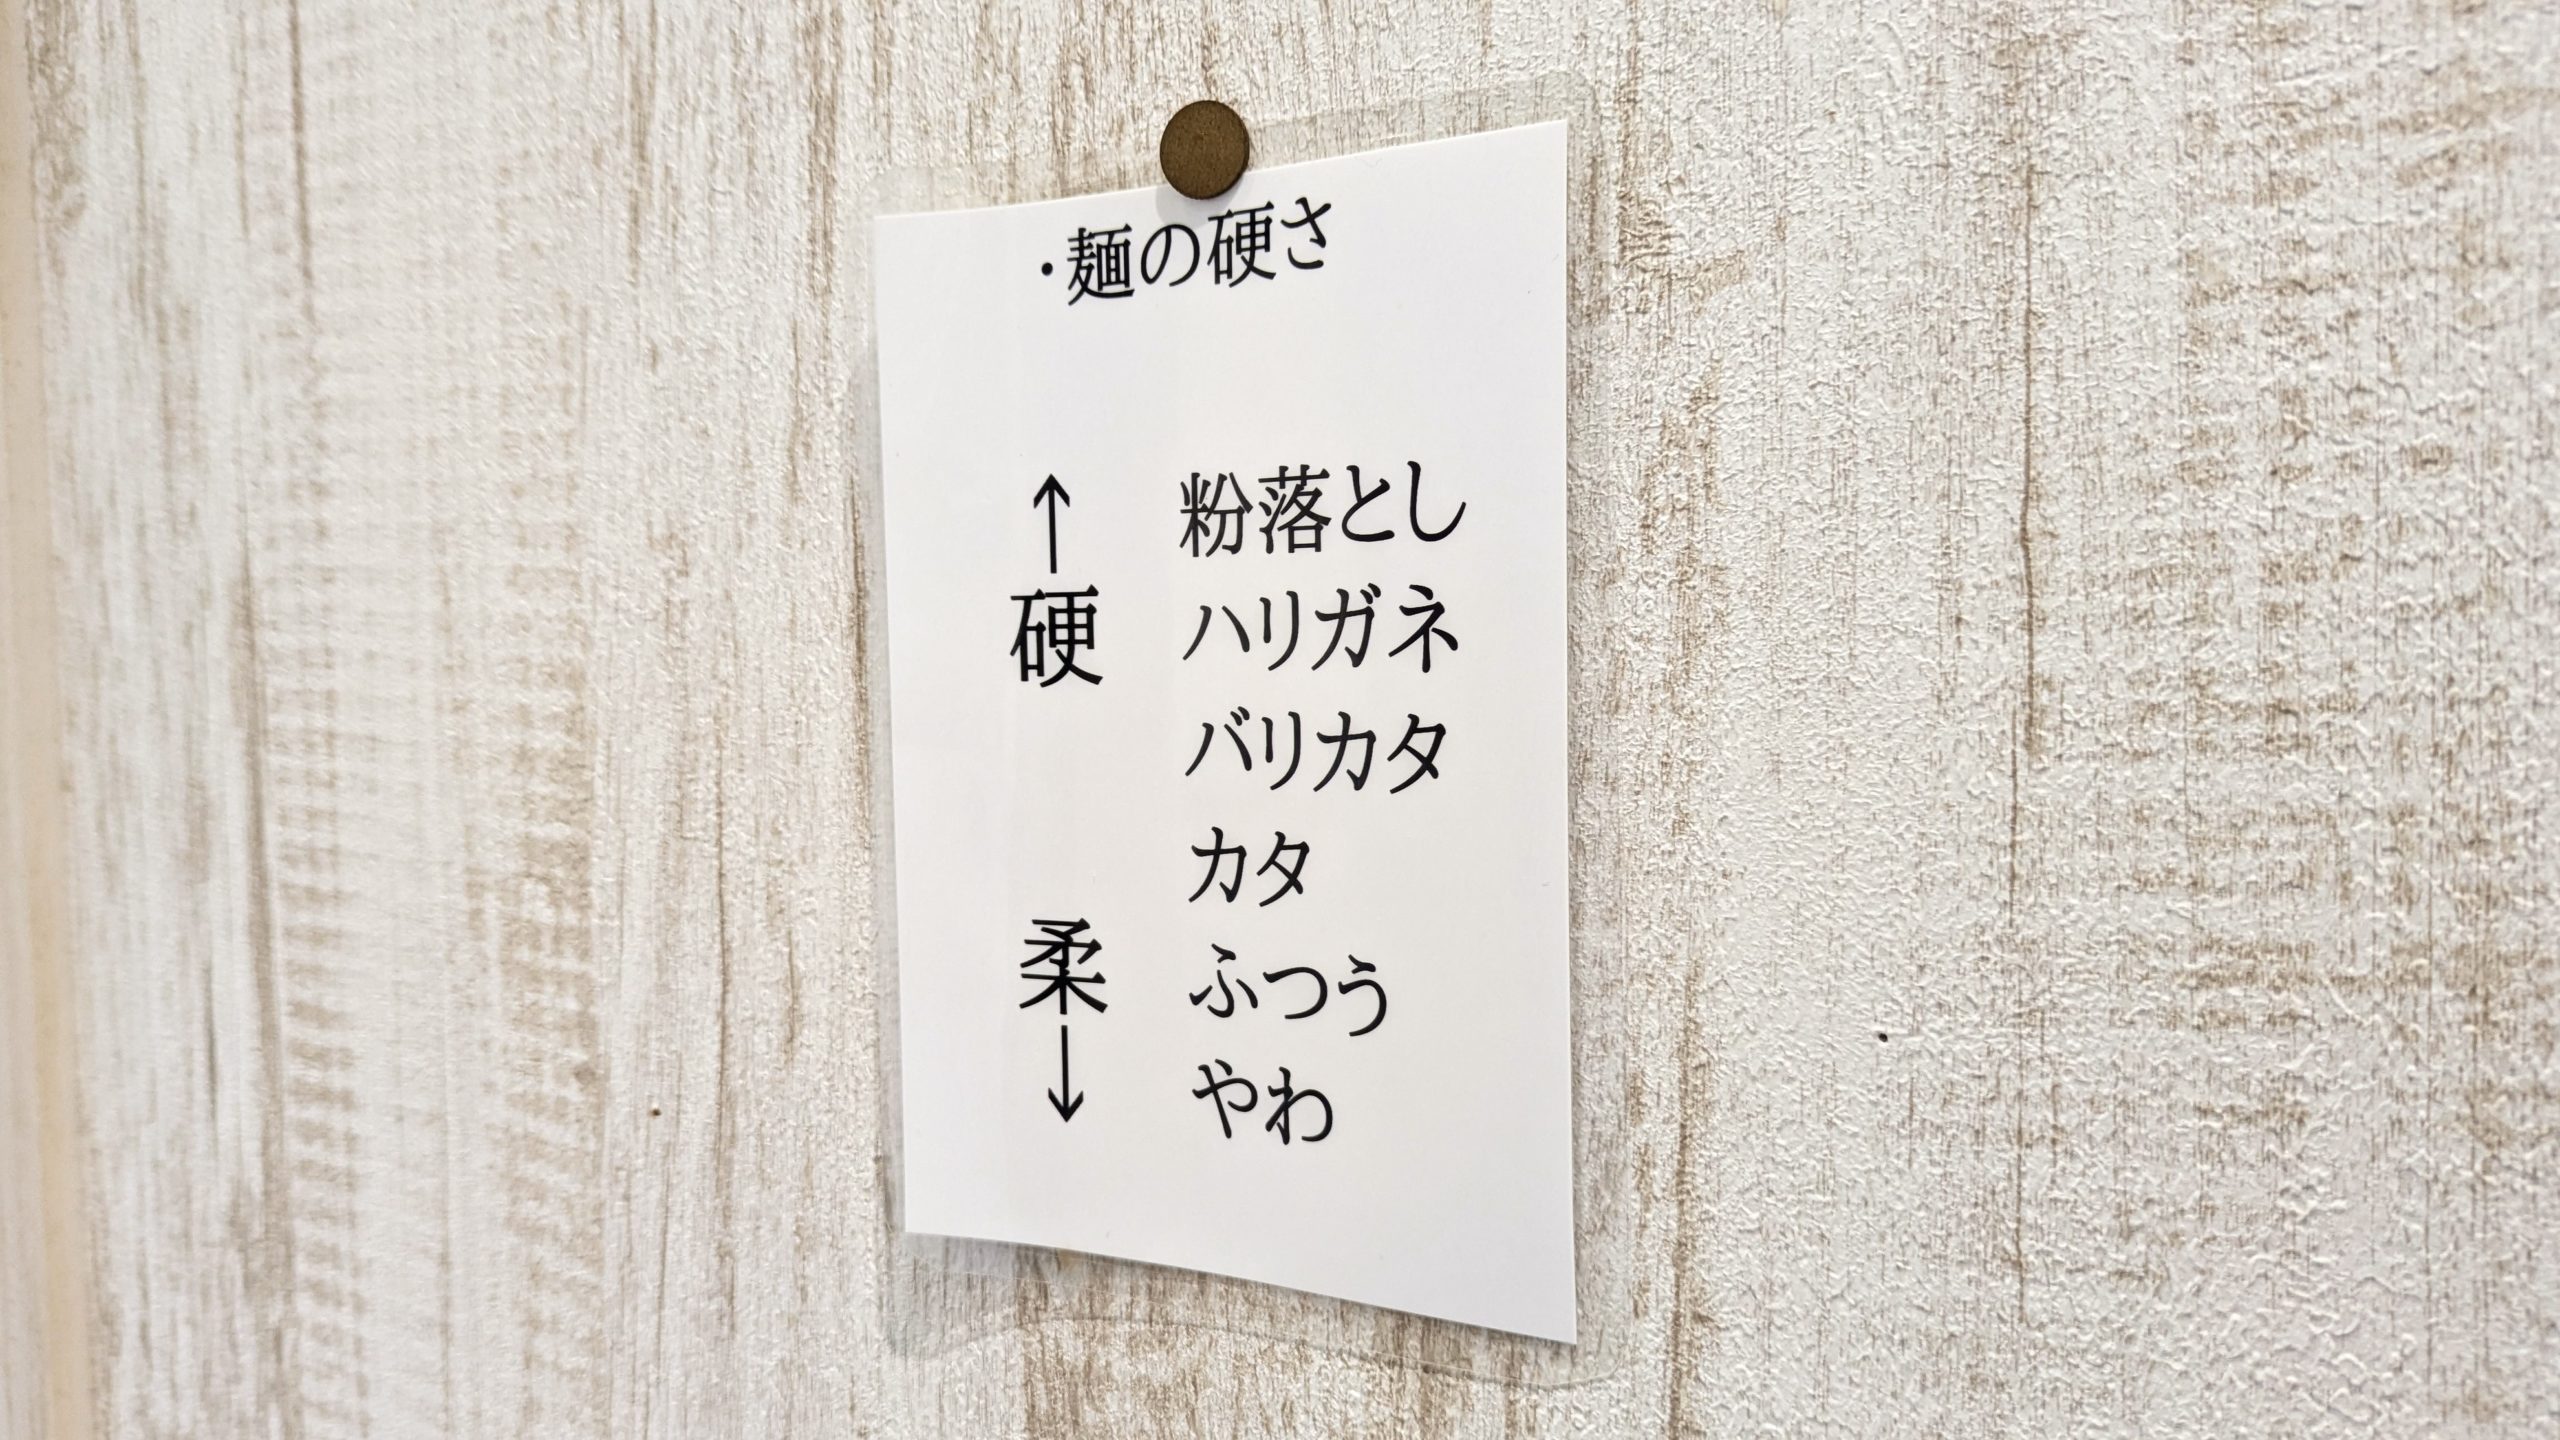 ・麺の硬さ
↑
硬
柔
↓
粉落とし
ハリガネ
バリカタ
カタ
ふつう
やわ